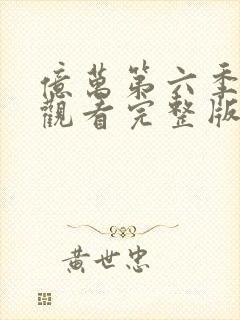 億萬第六季
觀看完整版
黃世忠